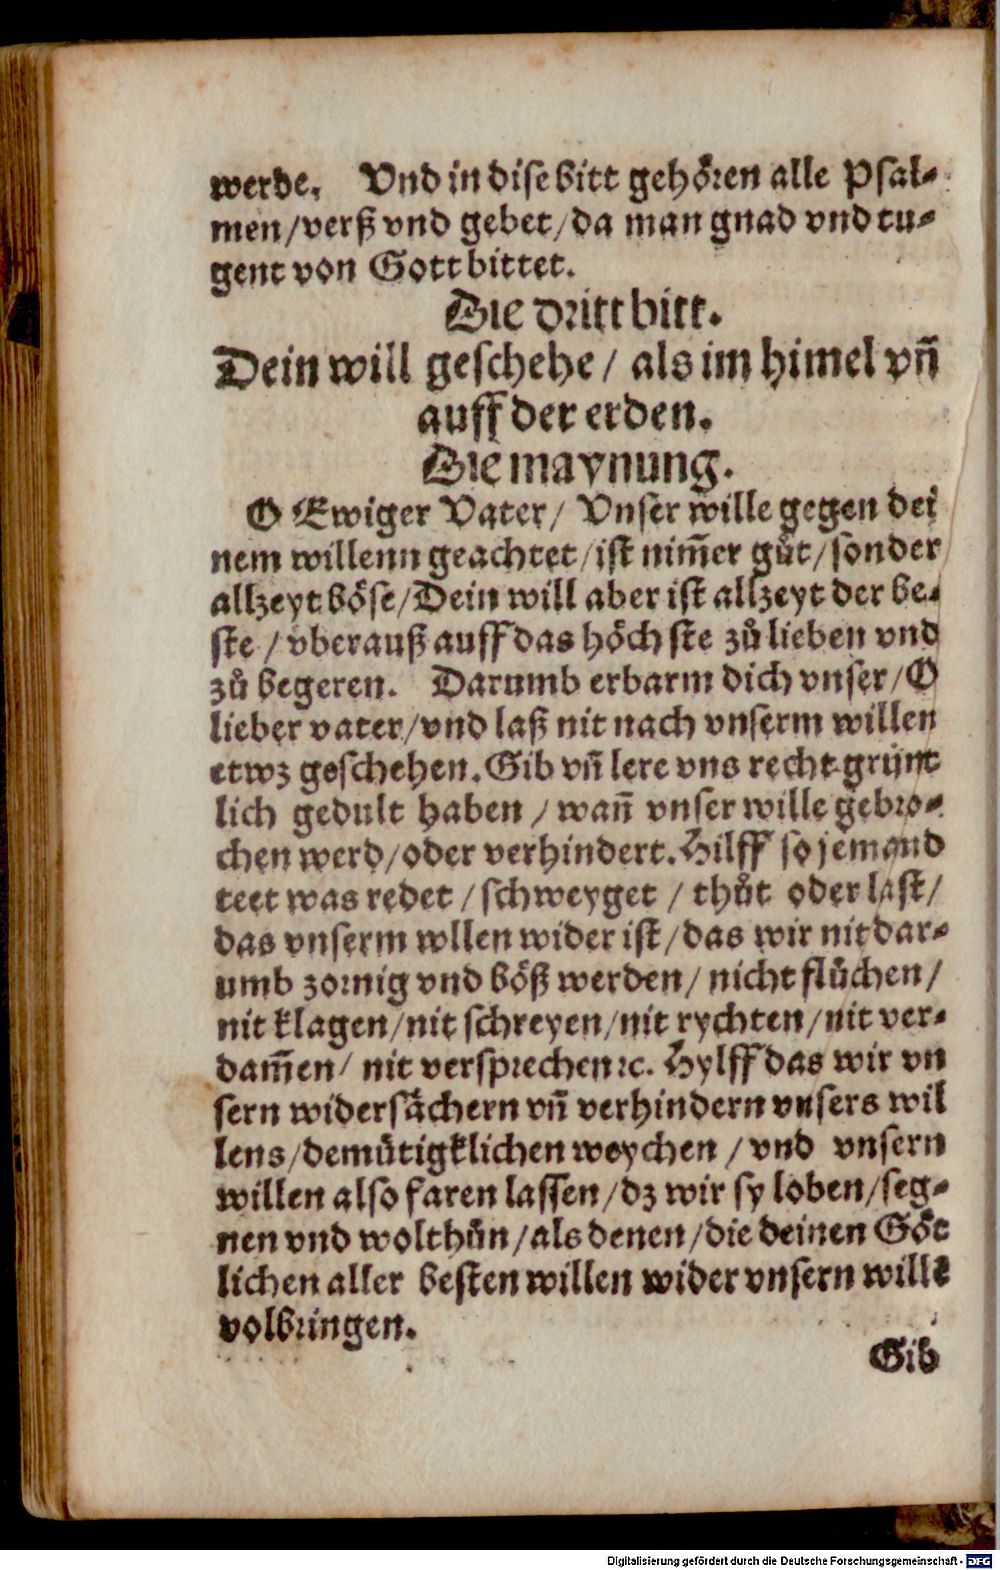 werde. Vnd in dise bitt gehören alle Psal-
men/verß vnd gebet/da man gnad vnd tu-
gent von Gott bittet.
Die dritt bitt.
Dein will geschehe/ als im himel vn̄
auff der erden.
Die maynung.
O Ewiger Vater/ Vnser wille gegen dei
nem willenn geachtet/ist nim̄er gůt/sonder
allzeyt böse/Dein will aber ist allzeyt der be-
ste/vberauß auff das höchste zů lieben vnd
zů begeren. Darumb erbarm dich vnser/O
lieber vater/vnd laß nit nach vnserm willen
etwz geschehen. Gib vn̄ lere vns recht grünt
lich gedult haben/wan̄ vnser wille gebro-
chen werd/oder verhindert. Hilff so jemand
teet was redet/schweyget/ thůt oder last/
das vnserm wllen wider ist/das wir nit dar-
umb zornig vnd böß werden/ nicht flůchen/
nit klagen/nit schreyen/nit rychten/nit ver-
dam̄en/ nit versprechen ꝛc. Hylff das wir vn
sern widersächern vn̄ verhindern vnsers wil
lens/demütigklichen weychen/vnd vnsern
willen also faren lassen/dz wir sy loben/seg-
nen vnd wolthůn/als denen/die deinen Göt
lichen aller besten willen wider vnsern willē
volbringen.
Gib
Digitalisierung gefördert durch die Deutsche Forschungsgemeinschaft - DFG